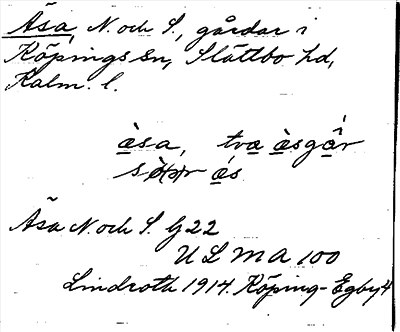 Åsa, N. och S., gårdar i
Köpings sn, Slättbo hd,
Kalm. l.
åsa, två åsgår
sør ås
Åsa N. och S. G 22
ULMA 100
Lindroth 1914. Köping-Egby 4